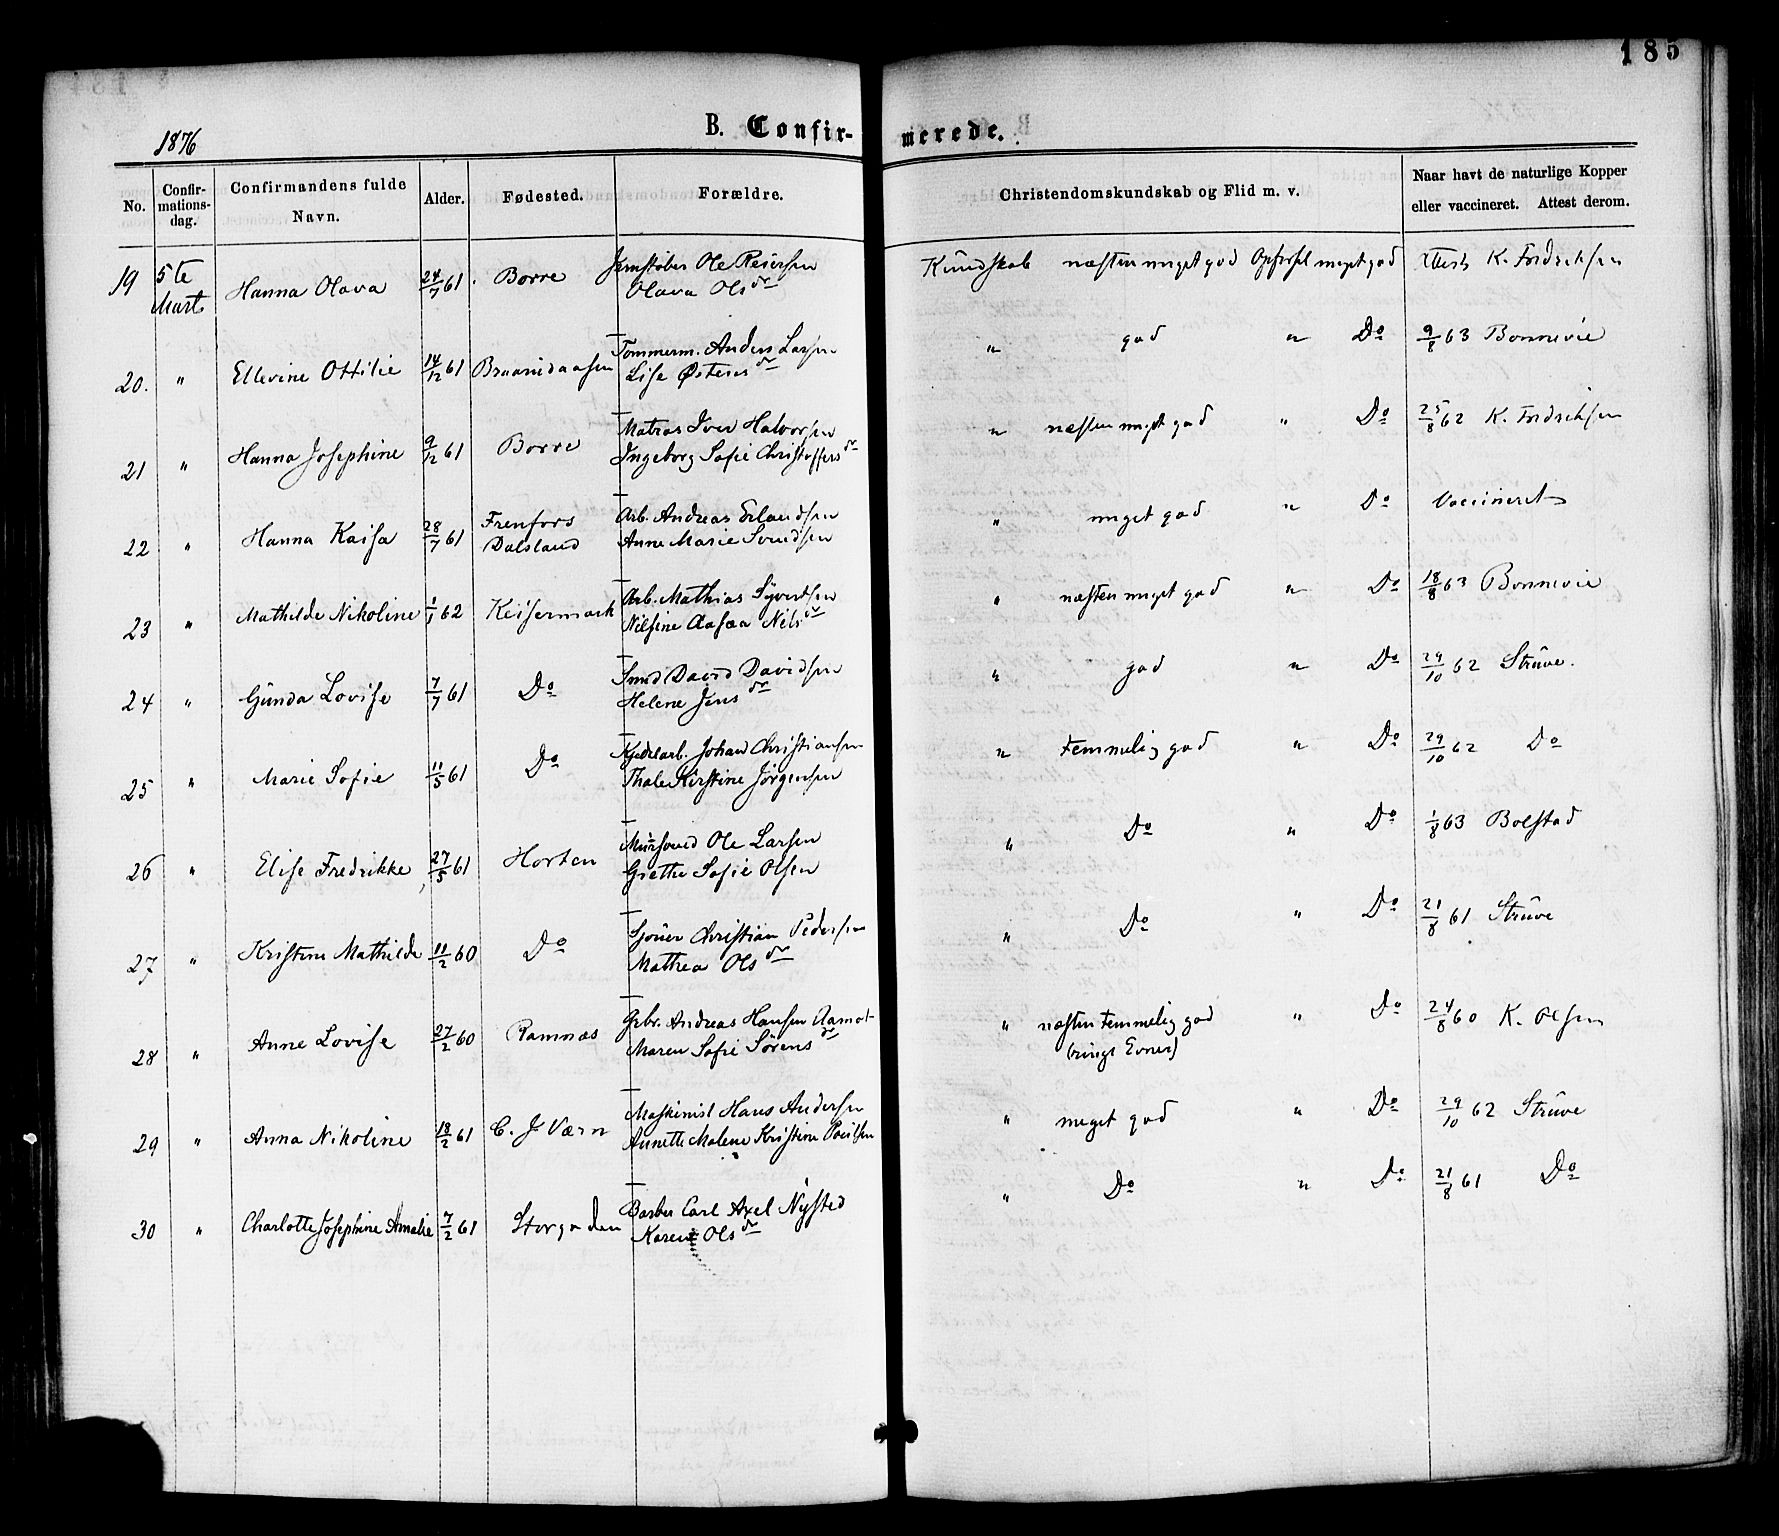 185
1876
B. Confir-
merede.
No.
Confir-
mations-
dag.
Confirmandens fulde
Navn.
Alder.
Fødested.
Forældre.
Christendomskundskab og Flid m. v.
Naar havt de naturlige Kopper
eller vaccineret. Attest derom.
19 5te Marts Hanna Olava 24/7 61. Borre
Ole Reiersen
Olava Olsdr
Kundskab næsten meget god Opførsel meget god Attest K. Fredriksen
20. " Ellevine Ottilie 14/12 61
Tommerm. Anders Larsen
Lise
" god " Do 9/8 63 Bonnevie
21 " Hanna Josephine 9/12 61 Borre
Matros Iver Halvorsen
Ingeborg Sofie Christoffersdr
" næsten meget god " Do 25/8 62 K. Fredriksen
22 " Hanna Kaisa 28/7 61 Frenfors
Dalsland
Arb. Andreas Erlandsen
Anne Marie Svendsen
" meget god " Do Vaccineret
23 " Mathilde Nikoline 1/1 62 Keisermark
Arb. Mathias Syvertsen
Nilsine Aasaa Nilsdr
" næsten meget god " Do 18/8 63 Bonnevie
24 " Gunda Lovise 7/7 61 Do
Smed David Davidsen
Helene Jensdr
" god " Do 29/10 62 Struve.
25 " Marie Sofie 11/5 61 Do
Kjedelarb. Johan Christiansen
Thale Kirstine Jørgensen
" Temmelig god " Do 29/10 62 Do
26 " Elise Fredrikke, 27/5 61 Horten
Ole Larsen
Grethe Sofie Olsen
" Do " Do 1/8 63 Bolstad
27 " Kristine Mathilde 11/2 60 Do
Christian Pedersen
Mathea Olsdr
" Do " Do 21/8 61 Struve
28 " Anne Lovise 27/2 60 Ramnæs
Gbr. Andreas Hansen Aamot
Maren Sofie Sørensdr
" næsten Temmelig god " Do 24/8 60 K. Olsen
(ringe Evner)
29 " Anna Nikoline 18/2 61 C. J. Værn
Maskinist Hans Andersen
Annette Malene Kristine Poulsen
" meget god " Do 29/10 62 Struve
30 " Charlotte Josephine Amalie 7/2 61 Storgaden
Barber Carl Axel Nysted
Karen Olsdr
" Do " Do 21/8 61 Do